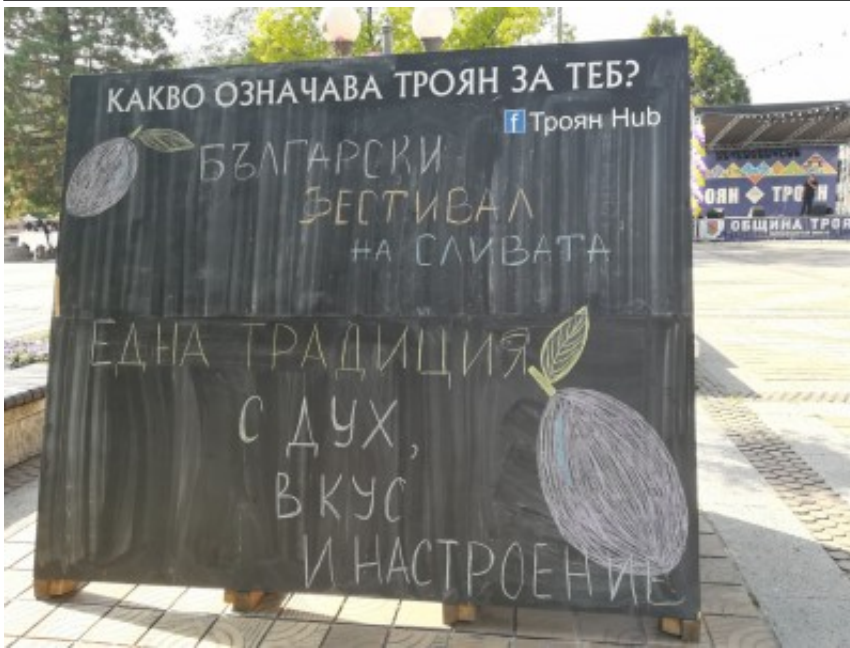 КАКВО ОЗНАЧАВА ТРОЯН ЗА ТЕБ?
f Троян Hub
БЪЛГАРСКИ
ФЕСТИВАЛ
НА СЛИВАТА
ЕДНА ТРАДИЦИЯ
С ДУХ,
ВКУС
И НАСТРОЕНИЕ
ОЯН ТРОЯН
ОБЩИНА ТРОЯ